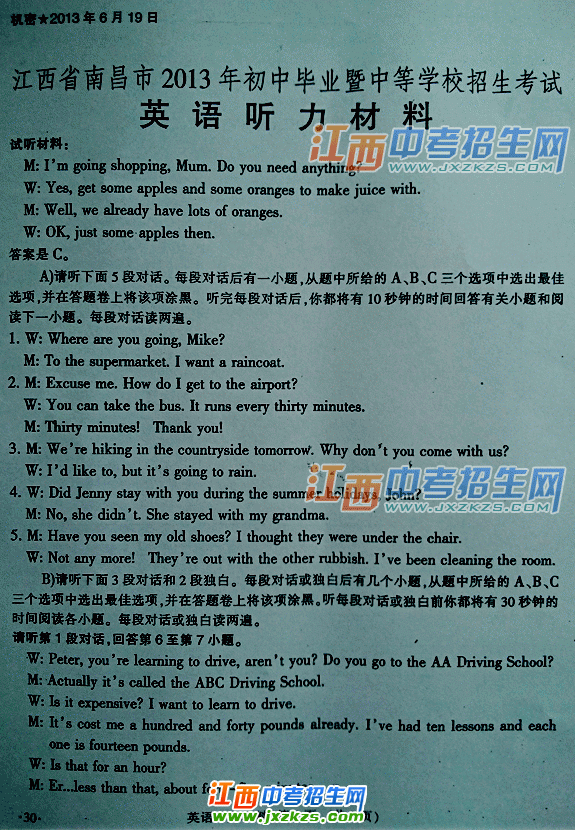 机密★2013年6月19日
江西省南昌市2013年初中毕业暨中等学校招生考试
英语听力材料
江西中考招生网
www.jxzkzs.com
试听材料：
M: I'm going shopping, Mum. Do you need anything?
W: Yes, get some apples and some oranges to make juice with.
M: Well, we already have lots of oranges.
W: OK, just some apples then.
答案是C。
A)请听下面5段对话。每段对话后有一小题,从题中所给的A、B、C三个选项中选出最佳
选项,并在答题卷上将该项涂黑。听完每段对话后,你都将有10秒钟的时间回答有关小题和阅
读下一小题。每段对话读两遍。
1. W: Where are you going, Mike?
M: To the supermarket. I want a raincoat.
2. M: Excuse me. How do I get to the airport?
W: You can take the bus. It runs every thirty minutes.
M: Thirty minutes! Thank you!
3. M: We're hiking in the countryside tomorrow. Why don't you come with us?
W: I'd like to, but it's going to rain.
江西中考招生网
www.jxzkzs.com
4. W: Did Jenny stay with you during the summer holidays, John?
M: No, she didn't. She stayed with my grandma.
5. M: Have you seen my old shoes? I thought they were under the chair.
W: Not any more! They're out with the other rubbish. I've been cleaning the room.
B)请听下面3段对话和2段独白。每段对话或独白后有几个小题,从题中所给的A、B、C
三个选项中选出最佳选项,并在答题卷上将该项涂黑。听每段对话或独白前你都将有30秒钟的
时间阅读各小题。每段对话或独白读两遍。
请听第1段对话,回答第6至第7小题。
W: Peter, you're learning to drive, aren't you? Do you go to the AA Driving School?
M: Actually it's called the ABC Driving School.
W: Is it expensive? I want to learn to drive.
M: It's cost me a hundred and forty pounds already. I've had ten lessons and each
one is fourteen pounds.
W: Is that for an hour?
M: Er...less than that, about
江西中考招生网
www.jxzkzs.com
·30·
英语